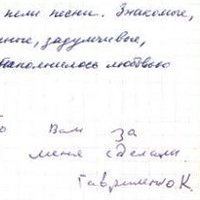 пели песни. Знакомые,
задумчивые,
наполнилось любовью
Вам за
меня сделали.
Гавриленко К.